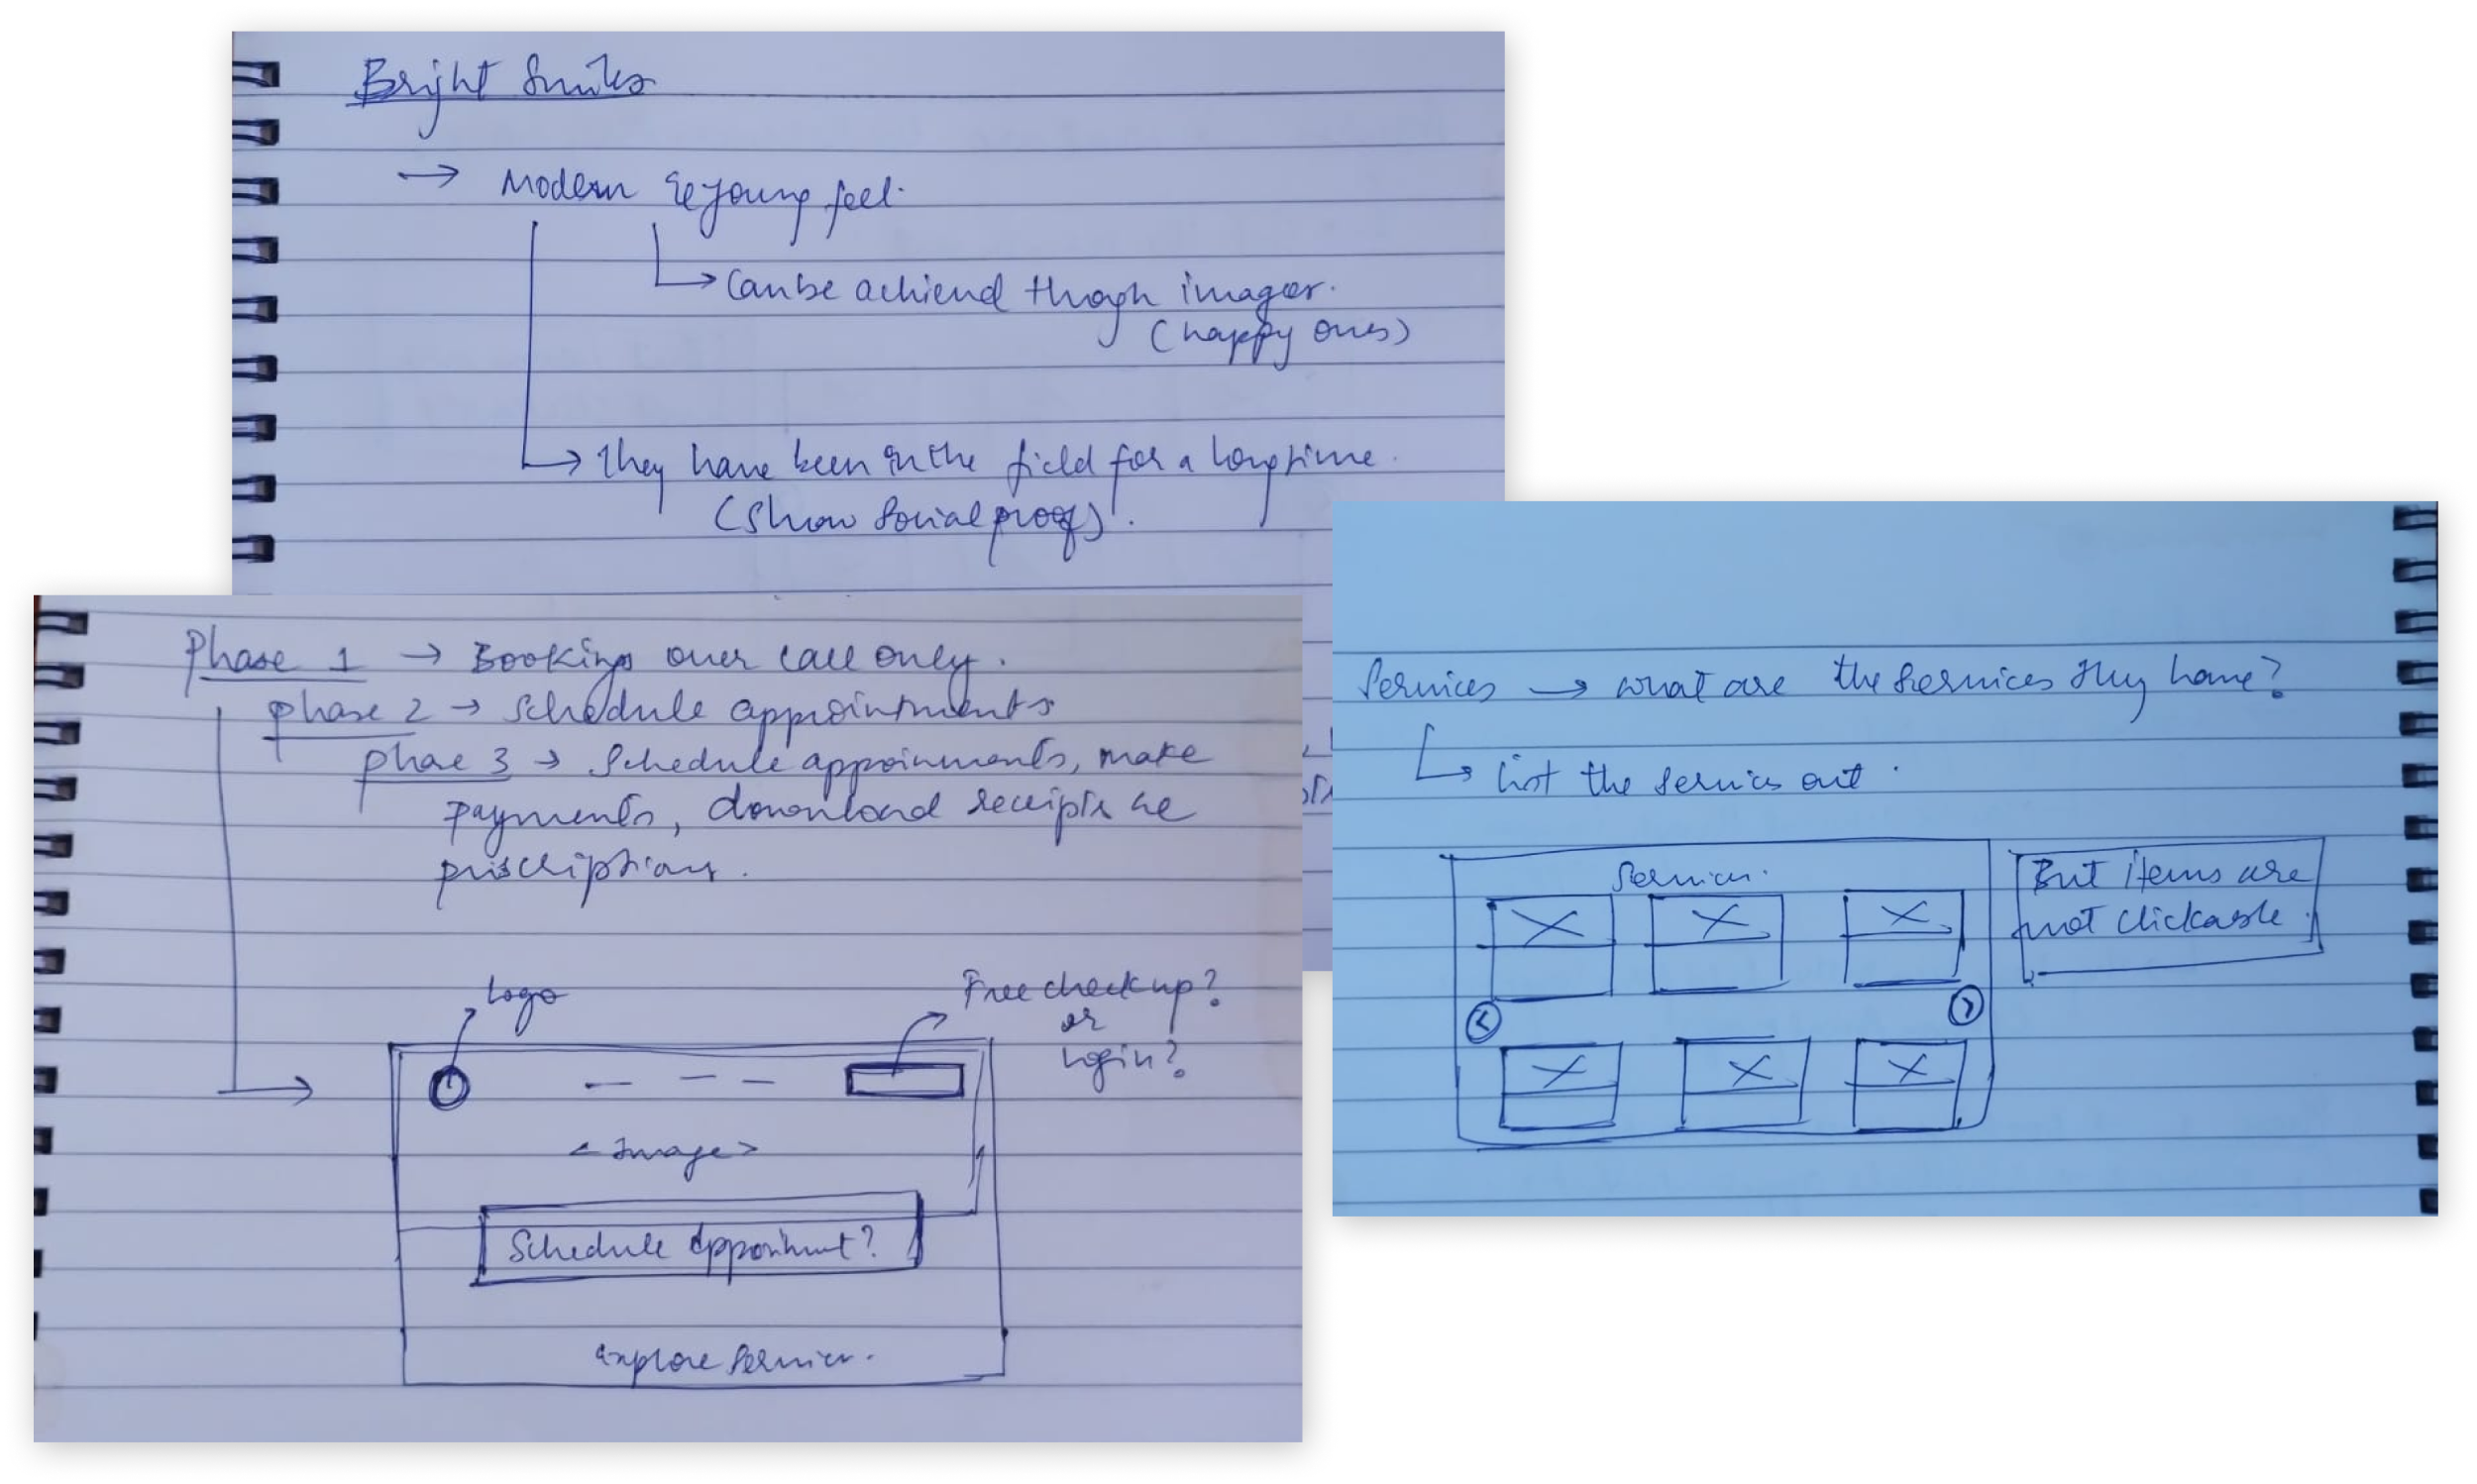 Bright Smiles
→ Modern & young feel.
→ Can be achieved through images.
(happy ones)
→ They have been in the field for a long time.
(Show Social proof).
Phase 1 → Bookings over call only.
phase 2 → Schedule appointments
phase 3 → Schedule appoinments, make
payments, download receipts &
priscriptions.
Logo
Free checkup?
or
login?
<Image>
Schedule Appointment?
explore Services.
Services → what are the Services they have?
→ list the services out.
Services.
But items are
not clickable.